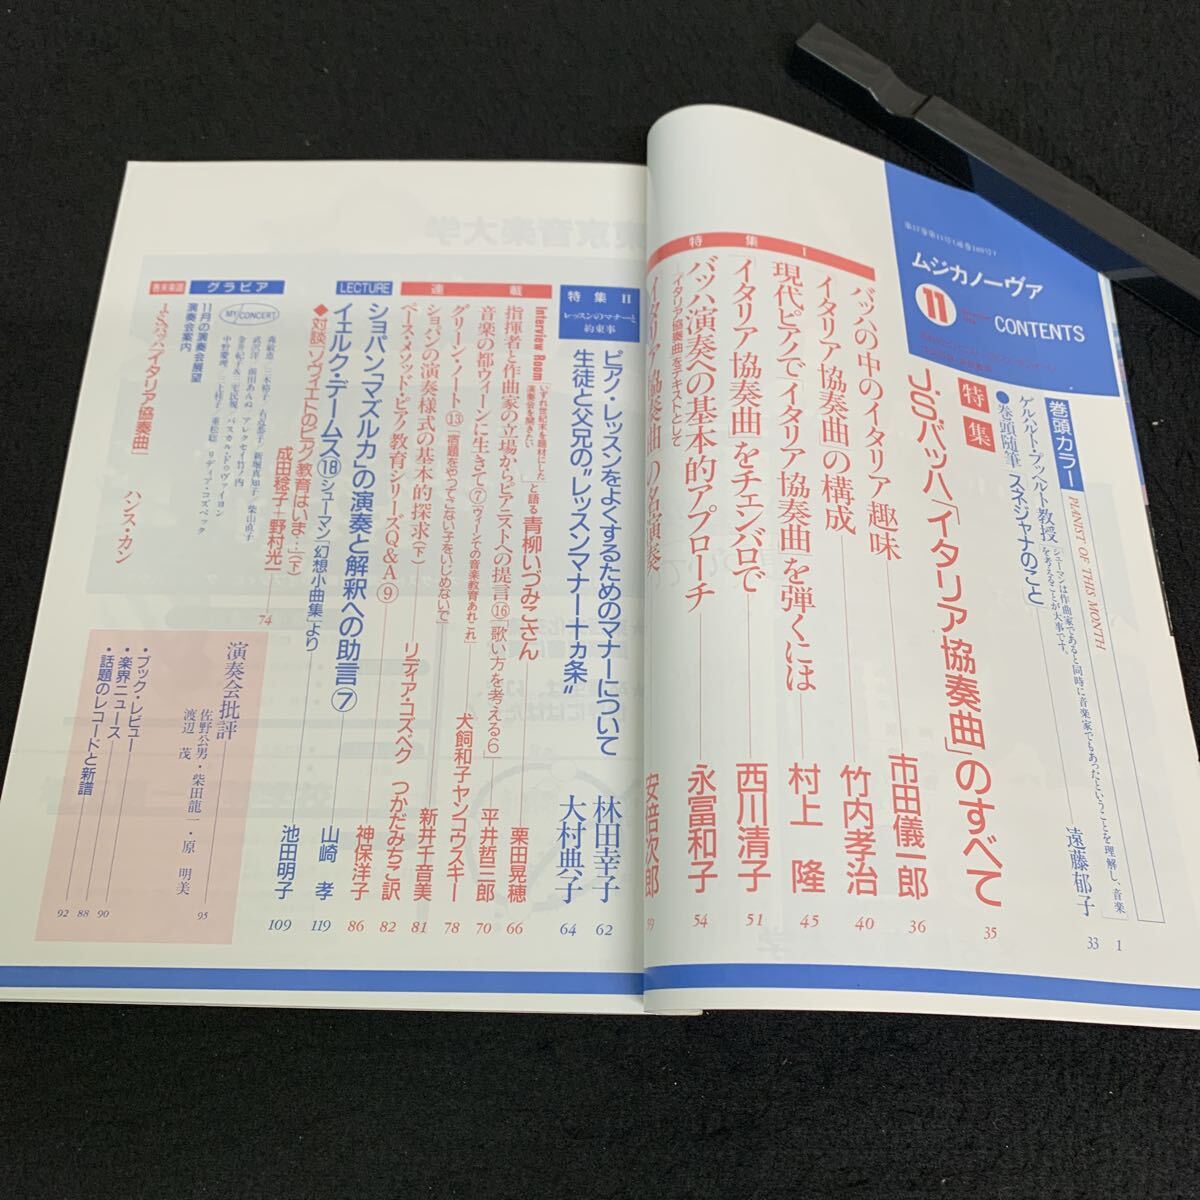 ムジカノーヴァ
11
CONTENTS
巻頭カラー
PIANIST OF THIS MONTH
ゲルハルト・プッヘルト教授
「シューマンは作曲家であると同時に音楽家でもあったということを理解し、音楽を考えることが大事です。」
1
●巻頭随筆 スネジャナのこと 遠藤郁子 33
特集
J.S.バッハ「イタリア協奏曲」のすべて 35
特集I
バッハの中のイタリア趣味 市田儀一郎 36
「イタリア協奏曲」の構成 竹内孝治 40
現代ピアノで「イタリア協奏曲」を弾くには 村上 隆 45
「イタリア協奏曲」をチェンバロで 西川清子 51
バッハ演奏への基本的アプローチ 永富和子 54
―「イタリア協奏曲」をテキストとして
「イタリア協奏曲」の名演奏 安倍次郎 59
特集II
レッスンのマナーと約束事
ピアノ・レッスンをよくするためのマナーについて 林田幸子 62
生徒と父兄の“レッスンマナー十ヵ条” 大村典子 64
連載
Interview Room 「いずれ世紀末を題材にした演奏会を開きたい」と語る 青柳いづみこさん
指揮者と作曲家の立場からピアニストへの提言⑯「歌い方を考える6」 栗田晃穂 66
音楽の都ウィーンに生きて⑦「ウィーンでの音楽教育あれこれ」 平井哲三郎 70
グリーン・ノート⑬「宿題をやってこない子をいじめないで」 犬飼和子ヤンコウスキー 78
ショパンの演奏様式の基本的探求(下) 新井千音美 81
ベース・メソッド・ピアノ教育シリーズQ&A⑨ リディア・コズベク つかだみちこ訳 82
神保洋子 86
LECTURE
ショパン「マズルカ」の演奏と解釈への助言⑦ 山崎 孝 119
イェルク・デームス⑱シューマン「幻想小曲集」より 池田明子 109
◆対談「ソヴィエトのピアノ教育はいま…」(下)
成田稔子+野村光一 74
グラビア
MY CONCERT
11月の演奏会展望
演奏会案内
巻末楽譜
よくバッハ「イタリア協奏曲」 ハンス・カン
演奏会批評
佐野公男・柴田龍一・原 明美
渡辺 茂
95
・ブック・レビュー 90
・楽界ニュース 88
・話題のレコードと新譜 92